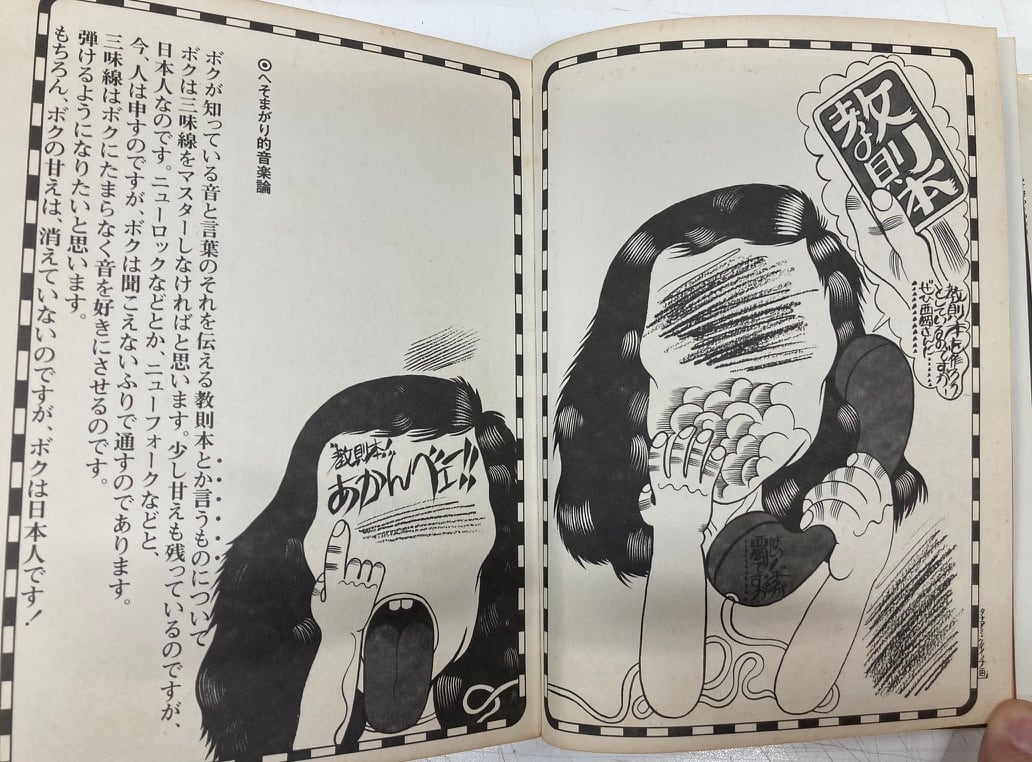 教則本
教則本を作ろう
としているのですが
ぜひ西岡さんに……
はい、ボクが
西岡ですが
………
◉へそまがり的音楽論
ボクが知っている音と言葉のそれを伝える教則本とか言うものについて
ボクは三味線をマスターしなければと思います。少し甘えも残っているのですが、
日本人なのです。ニューロックなどとか、ニューフォークなどと、
今、人は申すのですが、ボクは聞こえないふりで通すのであります。
三味線はボクにたまらなく音を好きにさせるのです。
弾けるようになりたいと思います。
もちろん、ボクの甘えは、消えていないのですが、ボクは日本人です!
"教則本"
あかんベェ!!